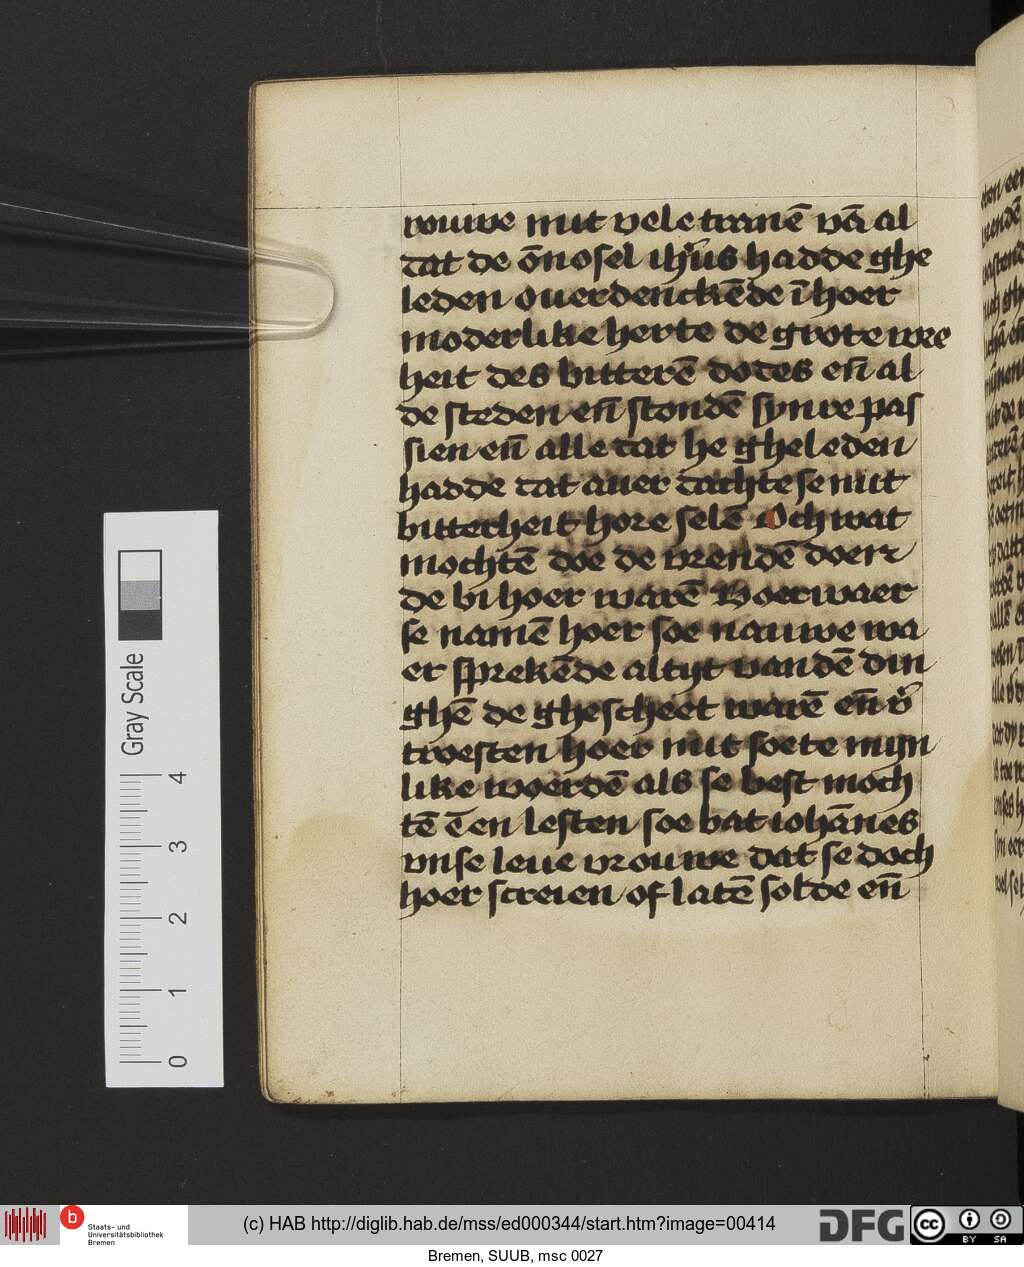 rouwe mit vele tranē vā al
dat de ōnosel ihūs hadde ghe
leden ouerdenckēde ī hoer
moderlike herte de grote wre
heit des bitterē dodes eñ al
de steden eñ stondē synre pas
sien eñ alle dat he gheleden
hadde dat auer dachte se mit
bitterheit hore selē Och wat
mochtē doe de vrendē doen
de bi hoer warē Voerwaer
se namē hoer soe nauwe wa
er sprekēde altyt van dē din
ghē de ghescheet warē eñ
troesten hoer mit soete myn
like woerdē als se best moch
tē Een lesten soe bat iohānes
vnse leue vrouwe dat se doch
hoer screien of latē solde eñ
Gray Scale
4
3
2
1
0
b
Staats- und
Universitätsbibliothek
Bremen
(c) HAB http://diglib.hab.de/mss/ed000344/start.htm?image=00414
DFG
cc BY SA
Bremen, SUUB, msc 0027